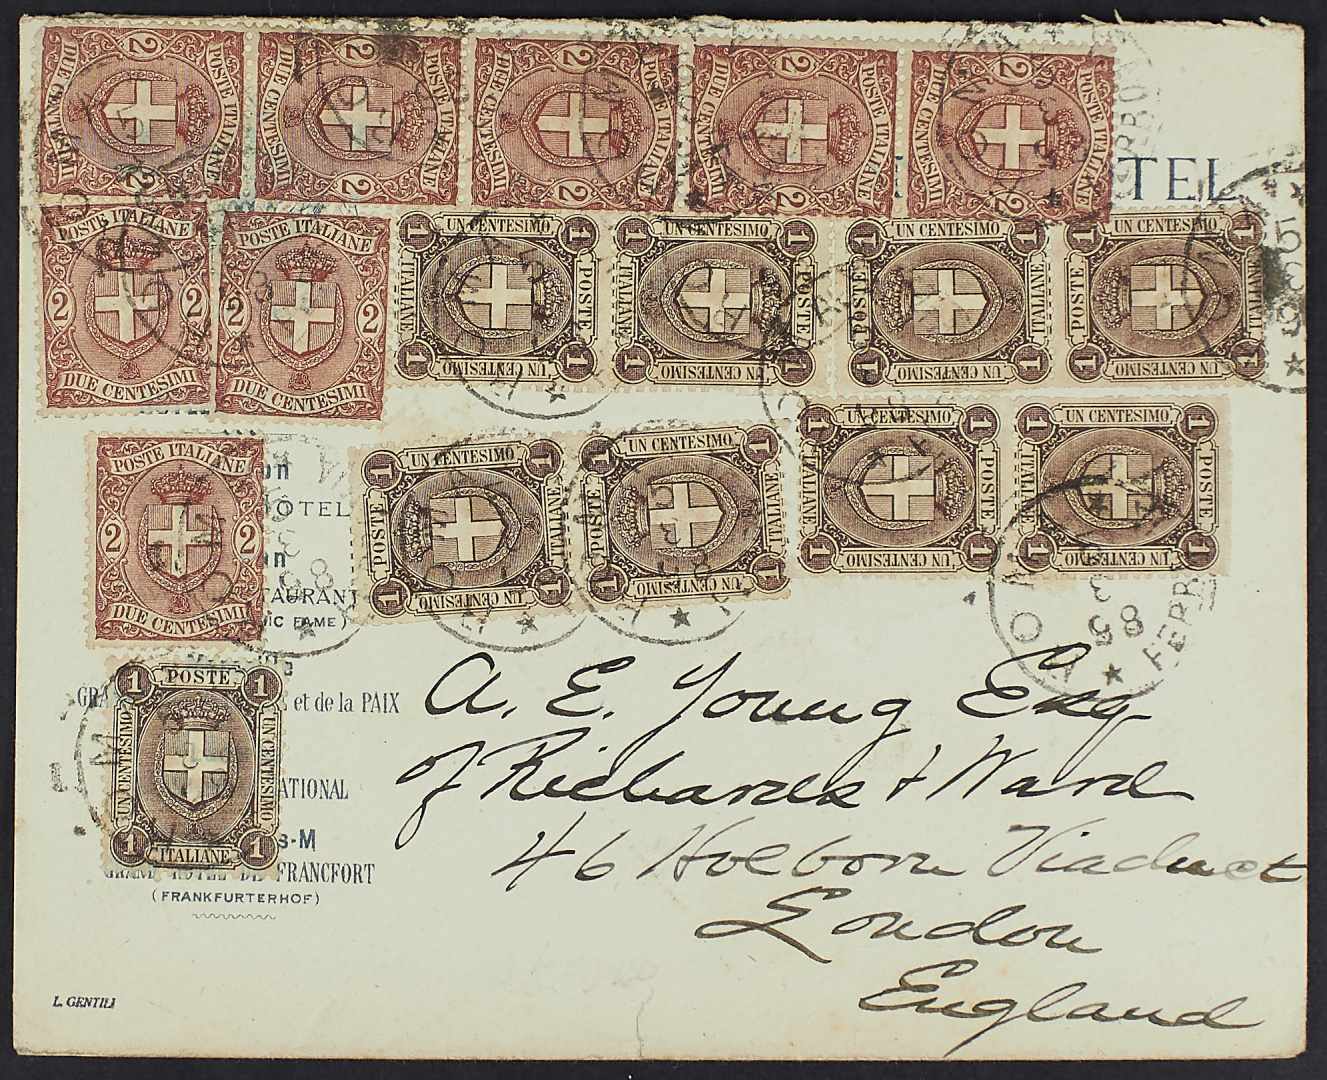 POSTE ITALIANE 2 2 DUE CENTESIMI
POSTE ITALIANE 2 2 DUE CENTESIMI
POSTE ITALIANE 2 2 DUE CENTESIMI
POSTE ITALIANE 2 2 DUE CENTESIMI
POSTE ITALIANE 2 2 DUE CENTESIMI
TEL
POSTE ITALIANE
2 2
DUE CENTESIMI
POSTE ITALIANE
2 2
DUE CENTESIMI
1 UN CENTESIMO 1 ITALIANE POSTE 1 UN CENTESIMO 1
1 UN CENTESIMO 1 ITALIANE POSTE 1 UN CENTESIMO 1
1 UN CENTESIMO 1 POSTE ITALIANE 1 UN CENTESIMO 1
1 UN CENTESIMO 1 POSTE ITALIANE 1 UN CENTESIMO 1
POSTE ITALIANE
2 2
DUE CENTESIMI
1 UN CENTESIMO 1 POSTE ITALIANE 1 UN CENTESIMO 1
1 UN CENTESIMO 1 POSTE ITALIANE 1 UN CENTESIMO 1
1 UN CENTESIMO 1 ITALIANE POSTE 1 UN CENTESIMO 1
1 UN CENTESIMO 1 ITALIANE POSTE 1 UN CENTESIMO 1
on
OTEL
on
TAURANT
IC FAME)
1 POSTE 1
UN CENTESIMO UN CENTESIMO
1 ITALIANE 1
GRA et de la PAIX
ATIONAL
s-M
GRAND HOTEL DE FRANCFORT
(FRANKFURTERHOF)
A. E. Young Esq
of Richards & Ward
46 Holborn Viaduct
London
England
L. GENTILI